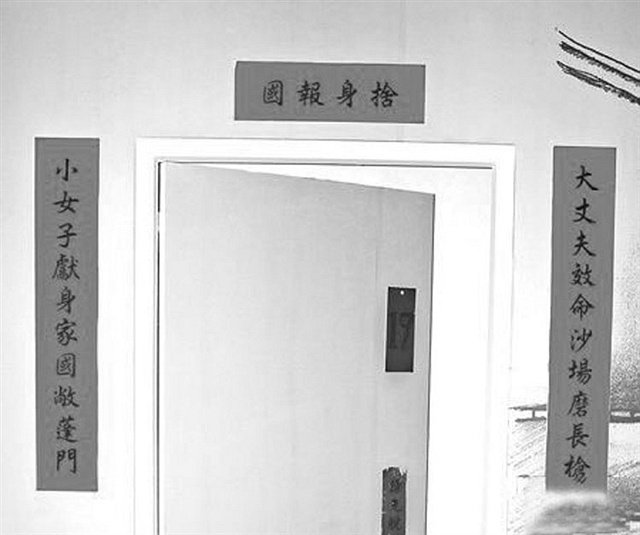 捨身報國
大丈夫效命沙場磨長槍
小女子獻身家國敞蓬門
19